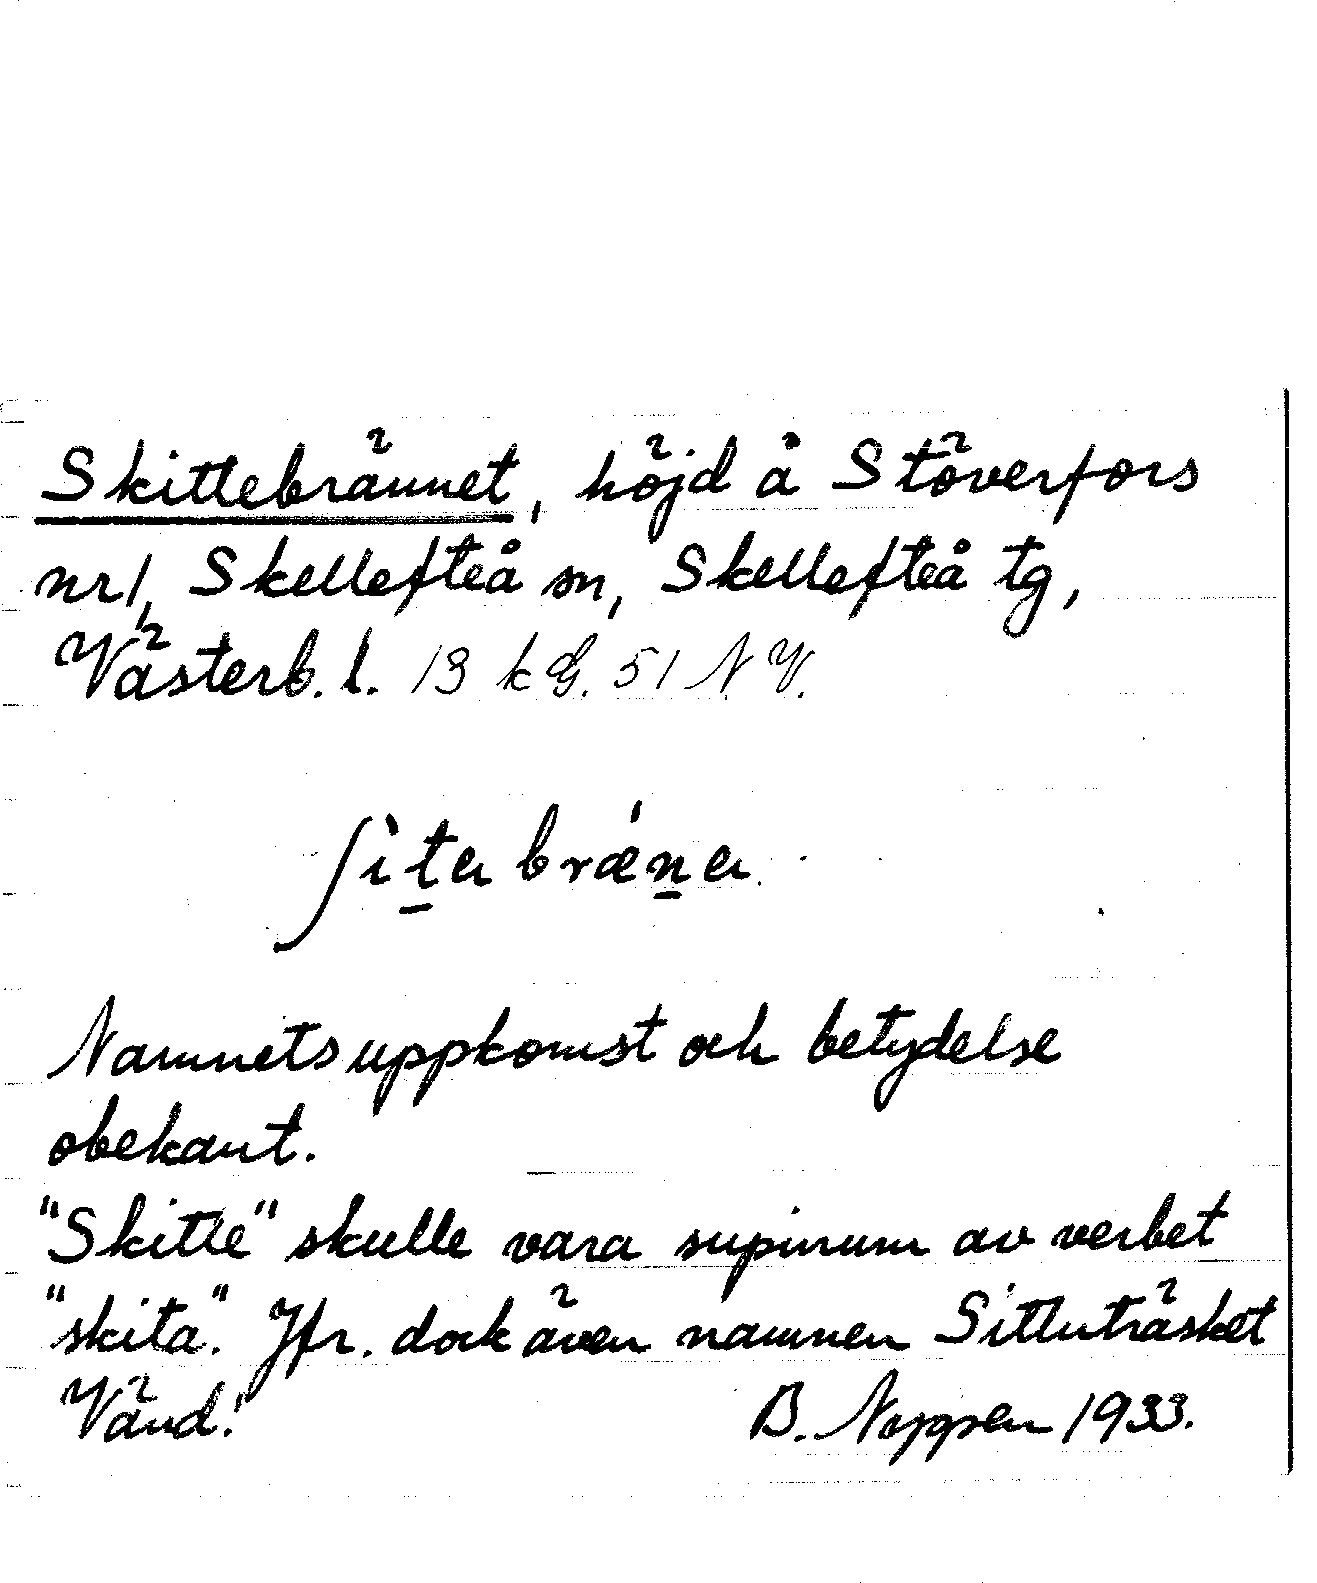 Skittebrännet, höjd å Stöverfors
nr 1, Skellefteå sn, Skellefteå tg,
Västerb. l. 13 k G. 51 N V.
ʃìta brǽna
Namnets uppkomst och betydelse
obekant.
"Skitte" skulle vara supinum av verbet
"skita". Jfr. dock även namnen Sittuträsket
Vänd!
B. 1933.